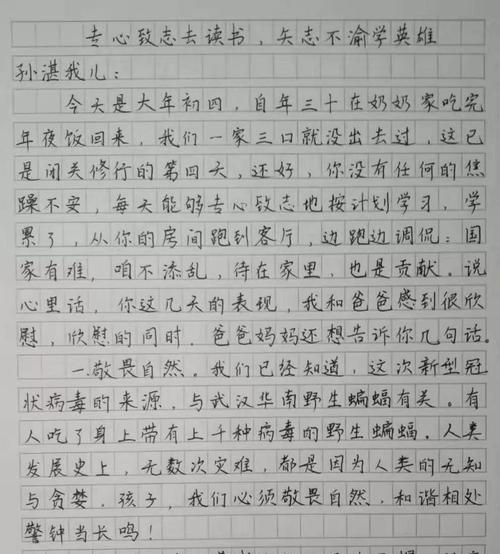 专心致志去读书，矢志不渝学英雄
孙湛我儿：
今天是大年初四，自年三十在奶奶家吃完
年夜饭回来，我们一家三口就没出去过，这已
是闭关修行的第四天，还好，你没有任何的焦
躁不安，每天能够专心致志地按计划学习，学
累了，从你的房间跑到客厅，边跑边调侃：国
家有难，咱不添乱，待在家里，也是贡献。说
心里话，你这几天的表现，我和爸爸感到很欣
慰，欣慰的同时，爸爸妈妈还想告诉你几句话。
一.敬畏自然。我们已经知道，这次新型冠
状病毒的来源，与武汉华南野生蝙蝠有关。有
人吃了身上带有上千种病毒的野生蝙蝠。人类
发展史上，无数次灾难，都是因为人类的无知
与贪婪。孩子，我们必须敬畏自然，和谐相处
警钟当长鸣！